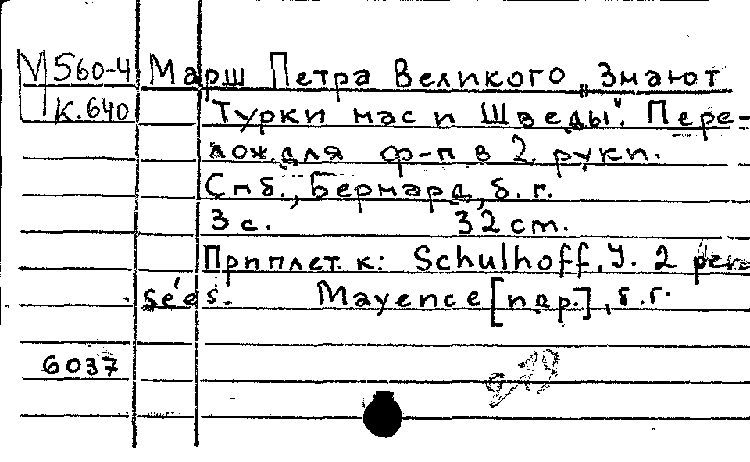 М560-4 Марш Петра Великого „Знают
К.640 Турки нас и Шведы". Пере-
лож. для ф-п в 2 руки.
Спб., Бернард, б. г.
3 с. 32 cm.
Приплет. к: Schulhoff, J. 2 pen-
sées. Mayence [пар.], б.г.
6037